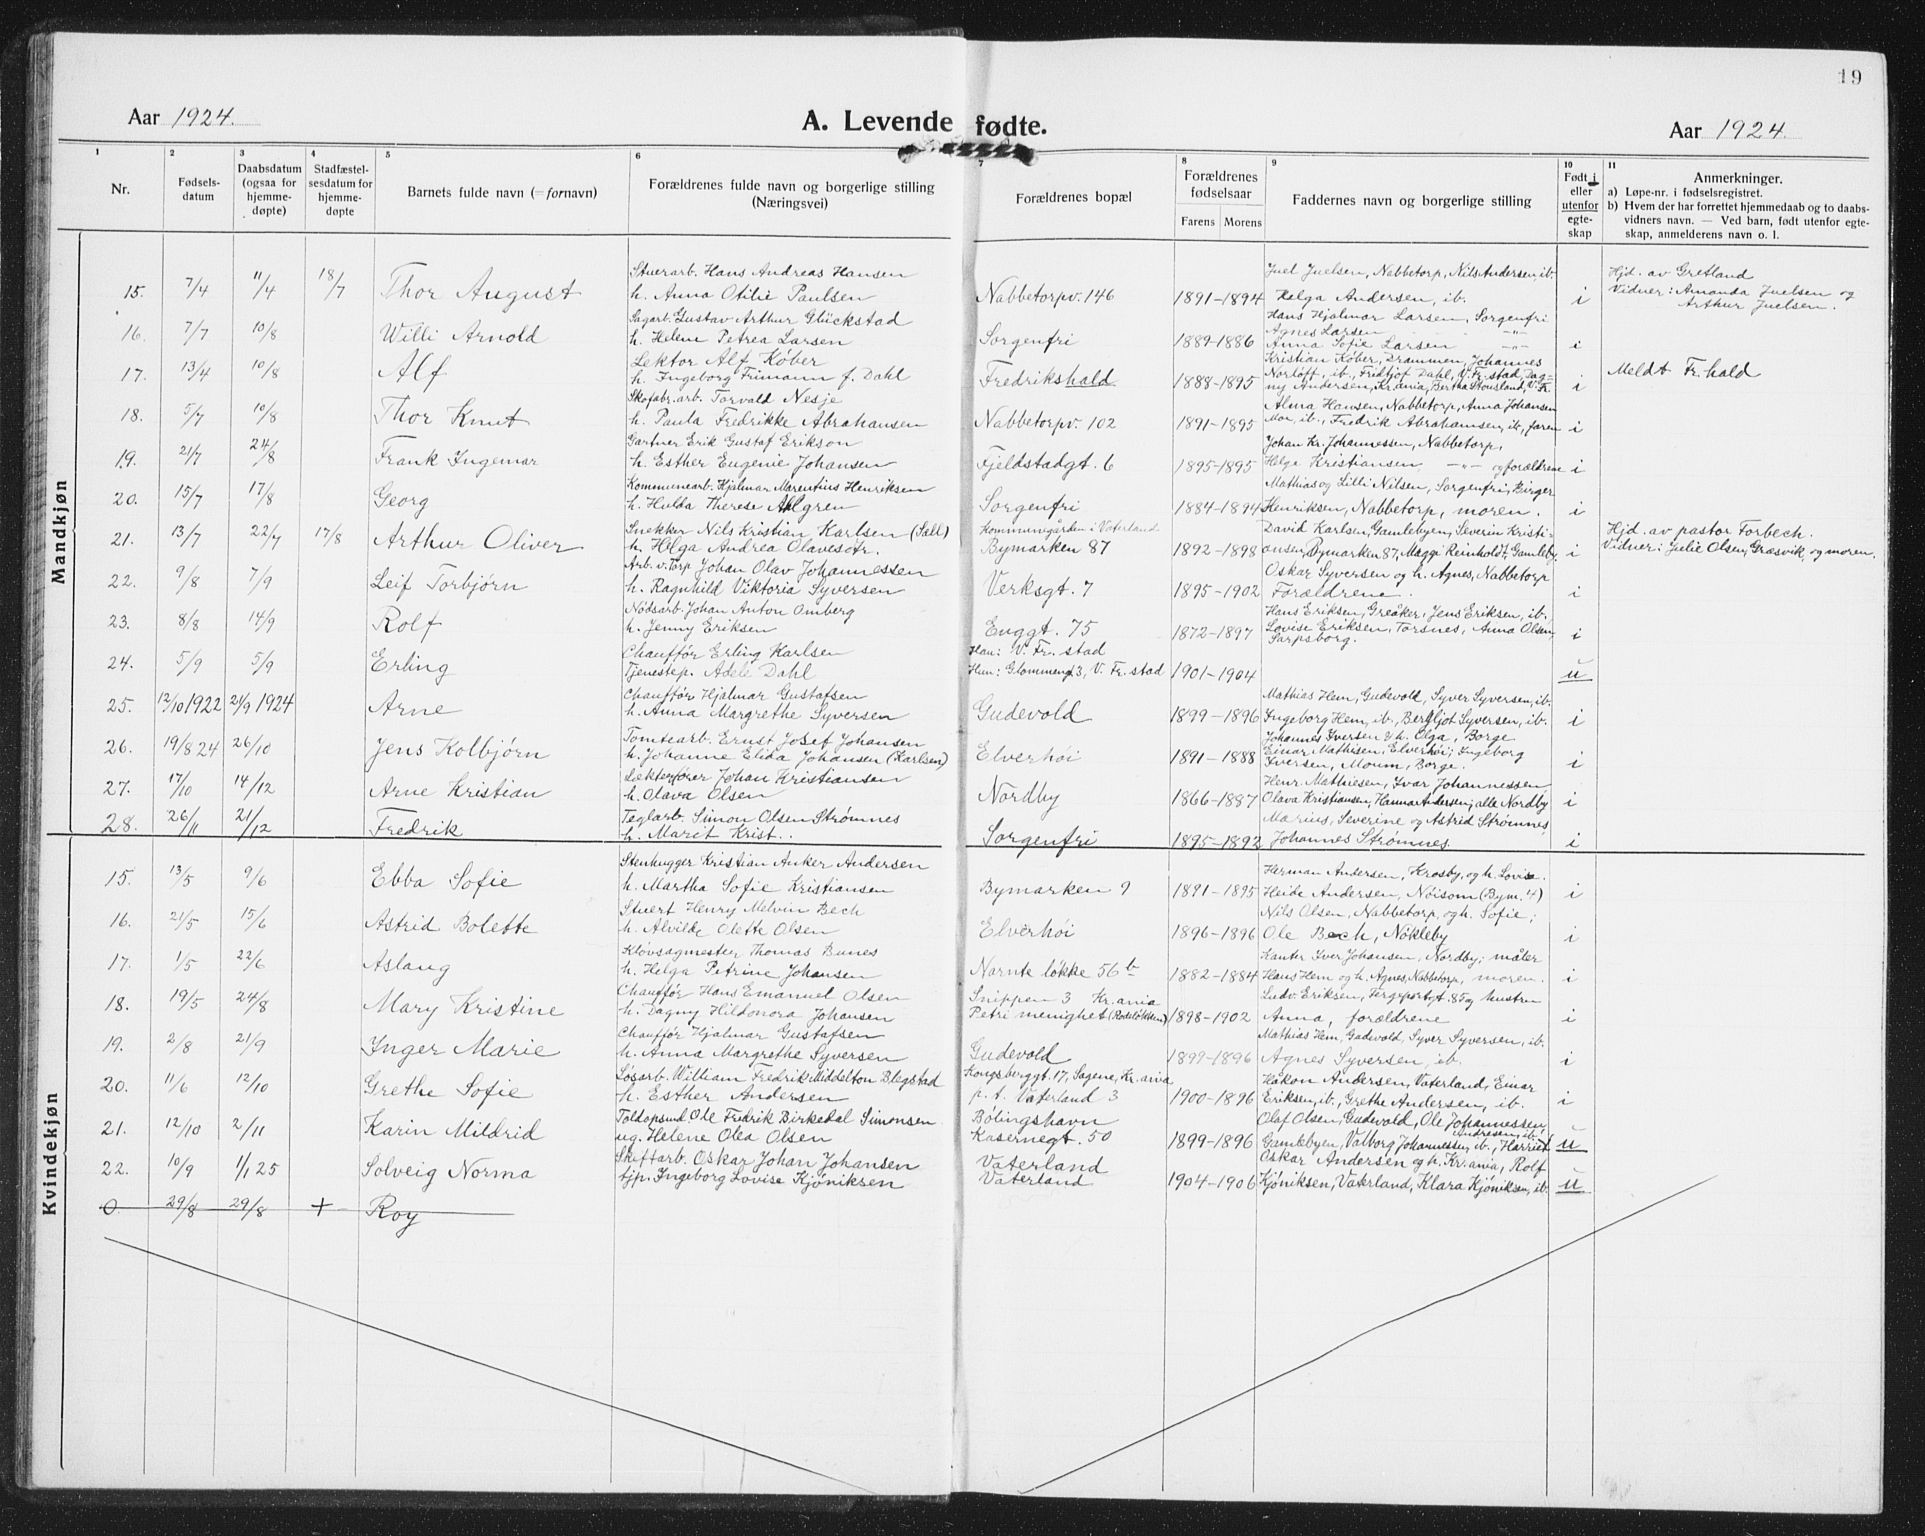 19
Aar 1924.
A. Levende fødte.
Aar 1924.
1 2 3 4 5 6 7 8 9 10 11
Nr.
Fødsels-
datum
Daabsdatum
(ogsaa for
hjemme-
døpte)
Stadfæstel-
sesdatum for
hjemme-
døpte
Barnets fulde navn (= fornavn)
Forældrenes fulde navn og borgerlige stilling
(Næringsvei)
Forældrenes bopæl
Forældrenes
fødselsaar
Farens Morens
Faddernes navn og borgerlige stilling
Født i
eller
utenfor
egte-
skap
Anmerkninger.
a) Løpe-nr. i fødselsregistret.
b) Hvem der har forrettet hjemmedaab og to daabs-
vidners navn. — Ved barn, født utenfor egte-
skap, anmelderens navn o. l.
Mandkjøn
15. 7/4 11/4 18/7 Thor August
Stuerarb. Hans Andreas Hansen
h. Anna Otilie Paulsen
Nabbetorpv. 146 1891-1894
Juel Juelsen, Nabbetorp, Nils Andersen, ib.
Helga Andersen, ib. i
Hjd. av Gretland
Vidner: Amanda Juelsen og
Arthur Juelsen.
16. 7/7 10/8 Willi Arnold
Sagarb. Gustav Arthur Glückstad
h. Helene Petrea Larsen
Sorgenfri 1889-1886
Hans Hjalmar Larsen, Sorgenfri
Agnes Larsen -"-
Anna Sofie Larsen -"- i
17. 13/4 10/8 Alf
Lektor Alf Køber
h. Ingeborg Frimann f. Dahl
Fredrikshald 1888-1895
Kristian Køber, Drammen, Johannes
Norløff, ib., Fridtjof Dahl, V. Fr. stad, Dag-
ny Andersen, Kr.ania, Bertha Stousland, V. Fr. i
Meldt Fr. hald
18. 5/7 10/8 Thor Knut
Skofabr. arb. Torvald Nesje
h. Paula Fredrikke Abrahamsen
Nabbetorpv. 102 1891-1895
Alma Hansen, Nabbetorp, Anna Johansen
Mor, ib., Fredrik Abrahamsen, ib, faren i
19. 21/7 24/8 Frank Ingemar
Gartner Erik Gustaf Erikson
h. Esther Eugenie Johansen
Fjeldstadgt. 6 1895-1895
Johan Kr. Johannessen, Nabbetorp,
Helge Kristiansen -"- og forældrene i
20. 15/7 17/8 Georg
Kommunearb. Hjalmar Marentius Henriksen
h. Hulda Therese Algren
Sorgenfri 1884-1894
Mathias og Lilli Nilsen, Sorgenfri, Birger
Henriksen, Nabbetorp, moren. i
21. 13/7 22/7 17/8 Arthur Oliver
Snekker Nils Kristian Karlsen (Säll)
h. Helga Andrea Olavesdtr.
Kommunegården i Vaterland
Bymarken 87 1892-1898
David Karlsen, Gamlebyen, Severin Kristi-
ansen, Bymarken 87, Maggi Reinholdt, Gamleby. i
Hjd. av pastor Forbech.
Vidner: Julie Olsen, Græsvik, og moren.
22. 9/8 7/9 Leif Torbjørn
Arb. v. Torp Johan Olav Johannessen
h. Ragnhild Viktoria Syversen
Verksgt. 7 1895-1902
Oskar Syversen og h. Agnes, Nabbetorp
Forældrene. i
23. 8/8 14/9 Rolf
Nødsarb. Johan Anton Omberg
h. Jenny Eriksen
Enggt. 75 1872-1897
Hans Eriksen, Greåker, Jens Eriksen, ib.
Lovise Eriksen, Torsnes, Anna Olsen,
Sarpsborg. i
24. 5/9 5/9 Erling
Chauffør Erling Karlsen
Tjenestep. Adele Dahl
Han: V. Fr. stad
Hun: Glommengt. 3, V. Fr. stad 1901-1904 u
25. 12/10 1922 21/9 1924 Arne
Chauffør Hjalmar Gustafsen
h. Anna Margrethe Syversen
Gudevold 1899-1896
Mathias Hem, Gudevold, Syver Syversen, ib.
Ingeborg Hem, ib., Bergljot Syversen, ib. i
26. 19/8 24 26/10 Jens Kolbjørn
Tomtearb. Ernst Josef Johansen
h. Johanne Elida Johansen (Karlsen)
Elverhöi 1891-1888
Johannes Iversen & h. Olga, Borge
Einar Mathisen, Elverhöi; Ingeborg
Iversen, Moum, Borge. i
27. 17/10 14/12 Arne Kristian
Lekterfører Johan Kristiansen
h. Olava Olsen
Nordby 1866-1887
Henr. Mathiesen, Ivar Johannessen
Olava Kristiansen, Hanna Andersen, alle Nordby i
28. 26/11 21/12 Fredrik
Teglarb. Simon Olsen Strømnes
h. Marit Krist..
Sorgenfri 1895-1892
Marius, Severine og Astrid Strømnes,
Johannes Strømnes. i
Kvindekjøn
15. 13/5 9/6 Ebba Sofie
Stenhugger Kristian Anker Andersen
h. Martha Sofie Kristiansen
Bymarken 9 1891-1895
Herman Andersen, Krosby, og h. Lovise.
Heide Andersen, Nöisom (Bym. 4) i
16. 21/5 15/6 Astrid Bolette
Stuert Henry Melvin Bech
h. Alvilde Olette Olsen
Elverhöi 1896-1896
Nils Olsen, Nabbetorp, og h. Sofie;
Ole Bech, Nökleby i
17. 1/5 22/6 Aslaug
Kløvsagmester Thomas Bunes
h. Helga Petrine Johansen
Narnte løkke 56b 1882-1884
Kanter Iver Johansen, Nordby; måler
Hans Hem og h. Agnes, Nabbetorp, moren. i
18. 19/5 24/8 Mary Kristine
Chauffør Hans Emanuel Olsen
h. Dagny Hildonora Johansen
Snippen 3 Kr.ania
Petri menighet (Rodeløkken) 1898-1902
Ludv. Eriksen, Fergeportgt. 85 og hustru
Anna, forældrene i
19. 2/8 21/9 Inger Marie
Chauffør Hjalmar Gustafsen
h. Anna Margrethe Syversen
Gudevold 1899-1896
Mathias Hem, Gudevold, Syver Syversen, ib.
Agnes Syversen, ib. i
20. 11/6 12/10 Grethe Sofie
Løsarb. William Fredrik Middelton Blegstad
h. Esther Andersen
Kongsberggt. 17, Sagene, Kr. ania
p. t. Vaterland 3 1900-1896
Håkon Andersen, Vaterland, Einar
Eriksen, ib., Grethe Andersen, ib. i
21. 12/10 2/11 Karin Mildrid
Toldopsmd. Ole Fredrik Birkedal Simonsen
ug. Helene Olea Olsen
Bölingshavn
Kasernegt. 50 1899-1896
Olaf Olsen, Gudevold, Ole Johannessen,
Andresen, ib.
Gamlebyen, Valborg Johannessen, ib., Harriet u
22. 10/9 1/1 25 Solveig Norma
Skiftarb. Oskar Johan Johansen
tjp. Ingeborg Lovise Kjöniksen
Vaterland
Vaterland 1904-1906
Oskar Andersen og h. Kr. ania, Rolf
Kjöniksen, Vaterland, Klara Kjöniksen, ib. u
0. 29/8 29/8 + Roy